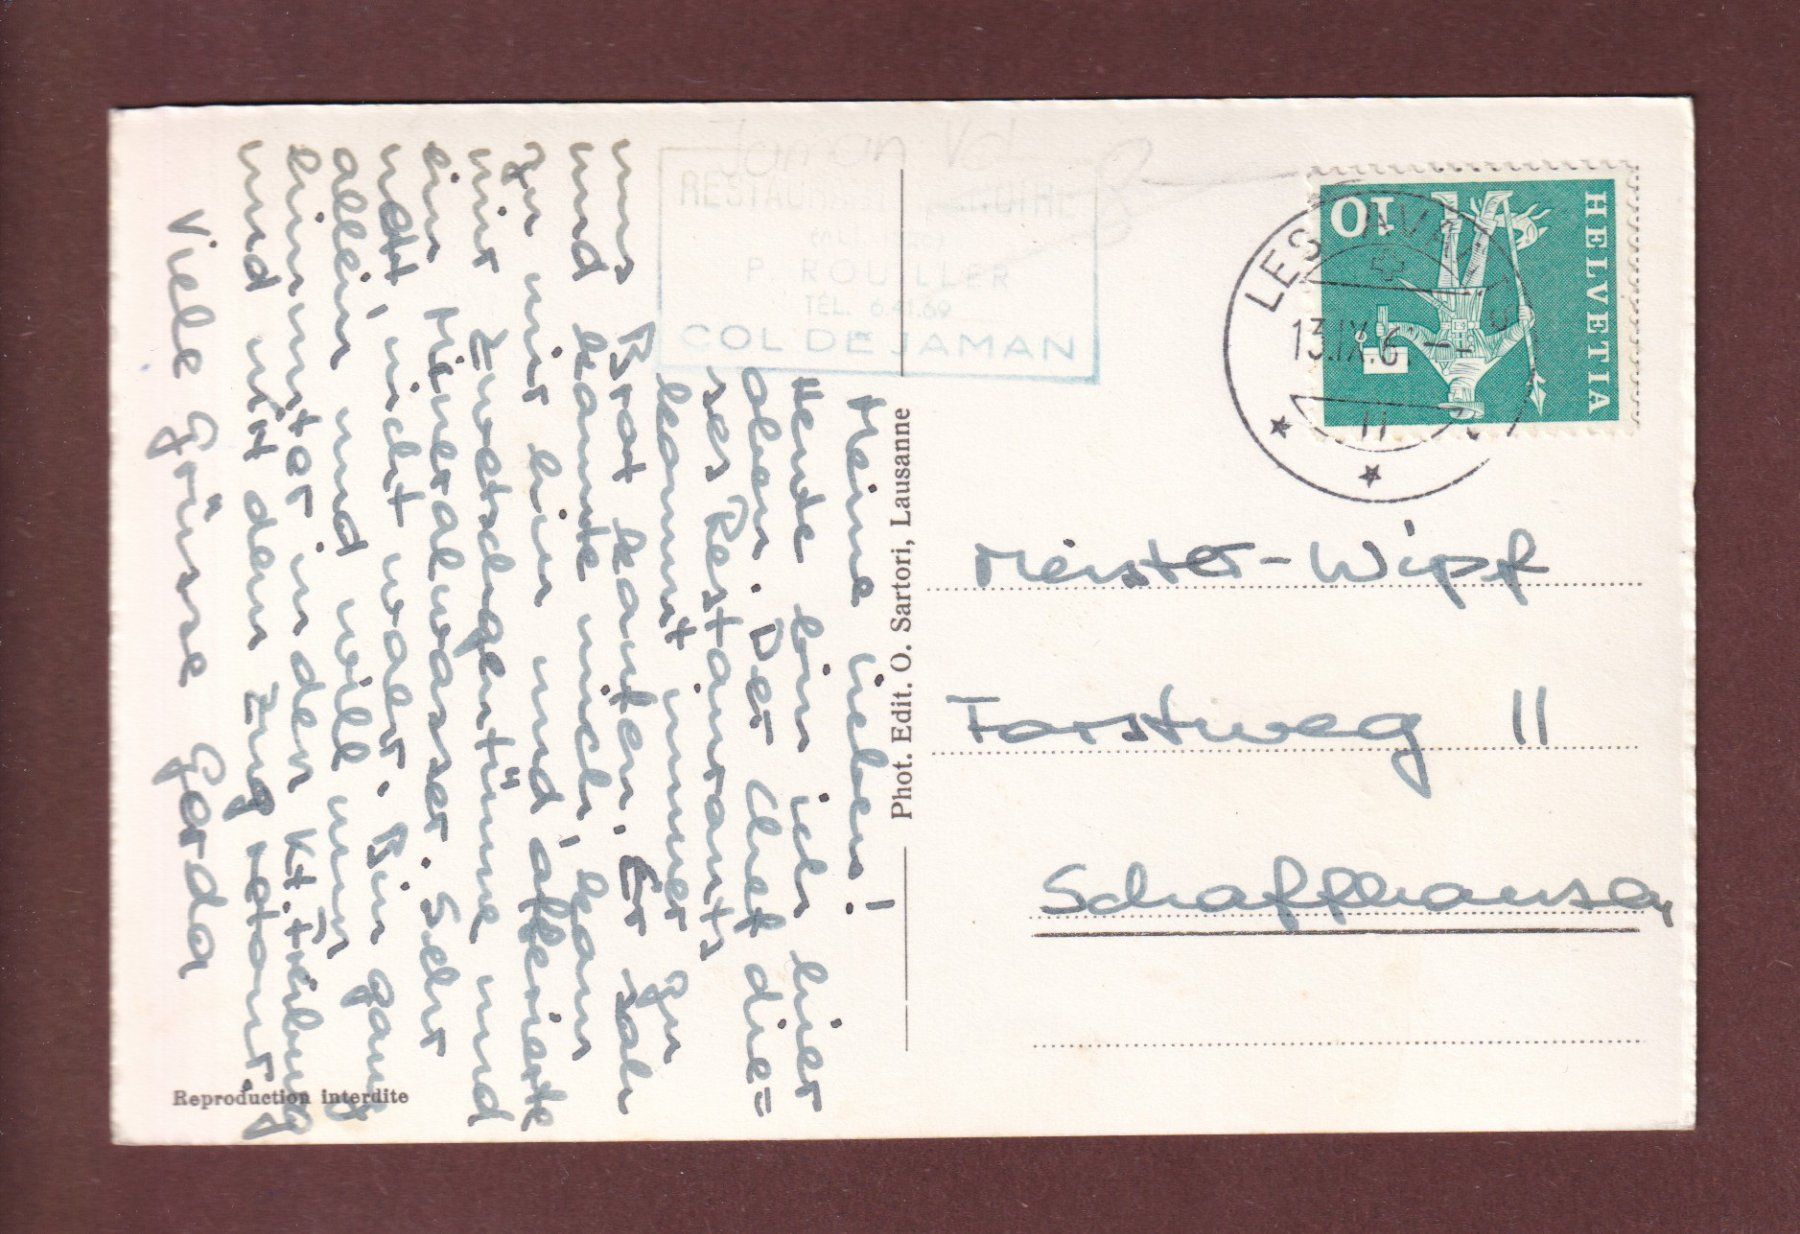 Meine Lieben!
Heute bin ich hier
oben. Der Chef die=
ses Restaurants
kommt immer zu
uns Brot kaufen. Er sah
und kannte mich, kam
zu mir hin und offerierte
mir Zwetschgentünne und
ein Mineralwasser. Sehr
nett, nicht wahr. Bin ganz
allein und will nun
hinunter in den Kt. Fribourg
und mit dem Zug retour.
Viele Grüsse Gerda
Jaman Vd
RESTAURANT
P. ROUILLER
TÉL. 6.41.69
COL DE JAMAN
Phot. Edit. O. Sartori, Lausanne
Reproduction interdite
HELVETIA
10
LES AVANTS
13.IX.6
11
Meister-Wipf
Forstweg 11
Schaffhausen